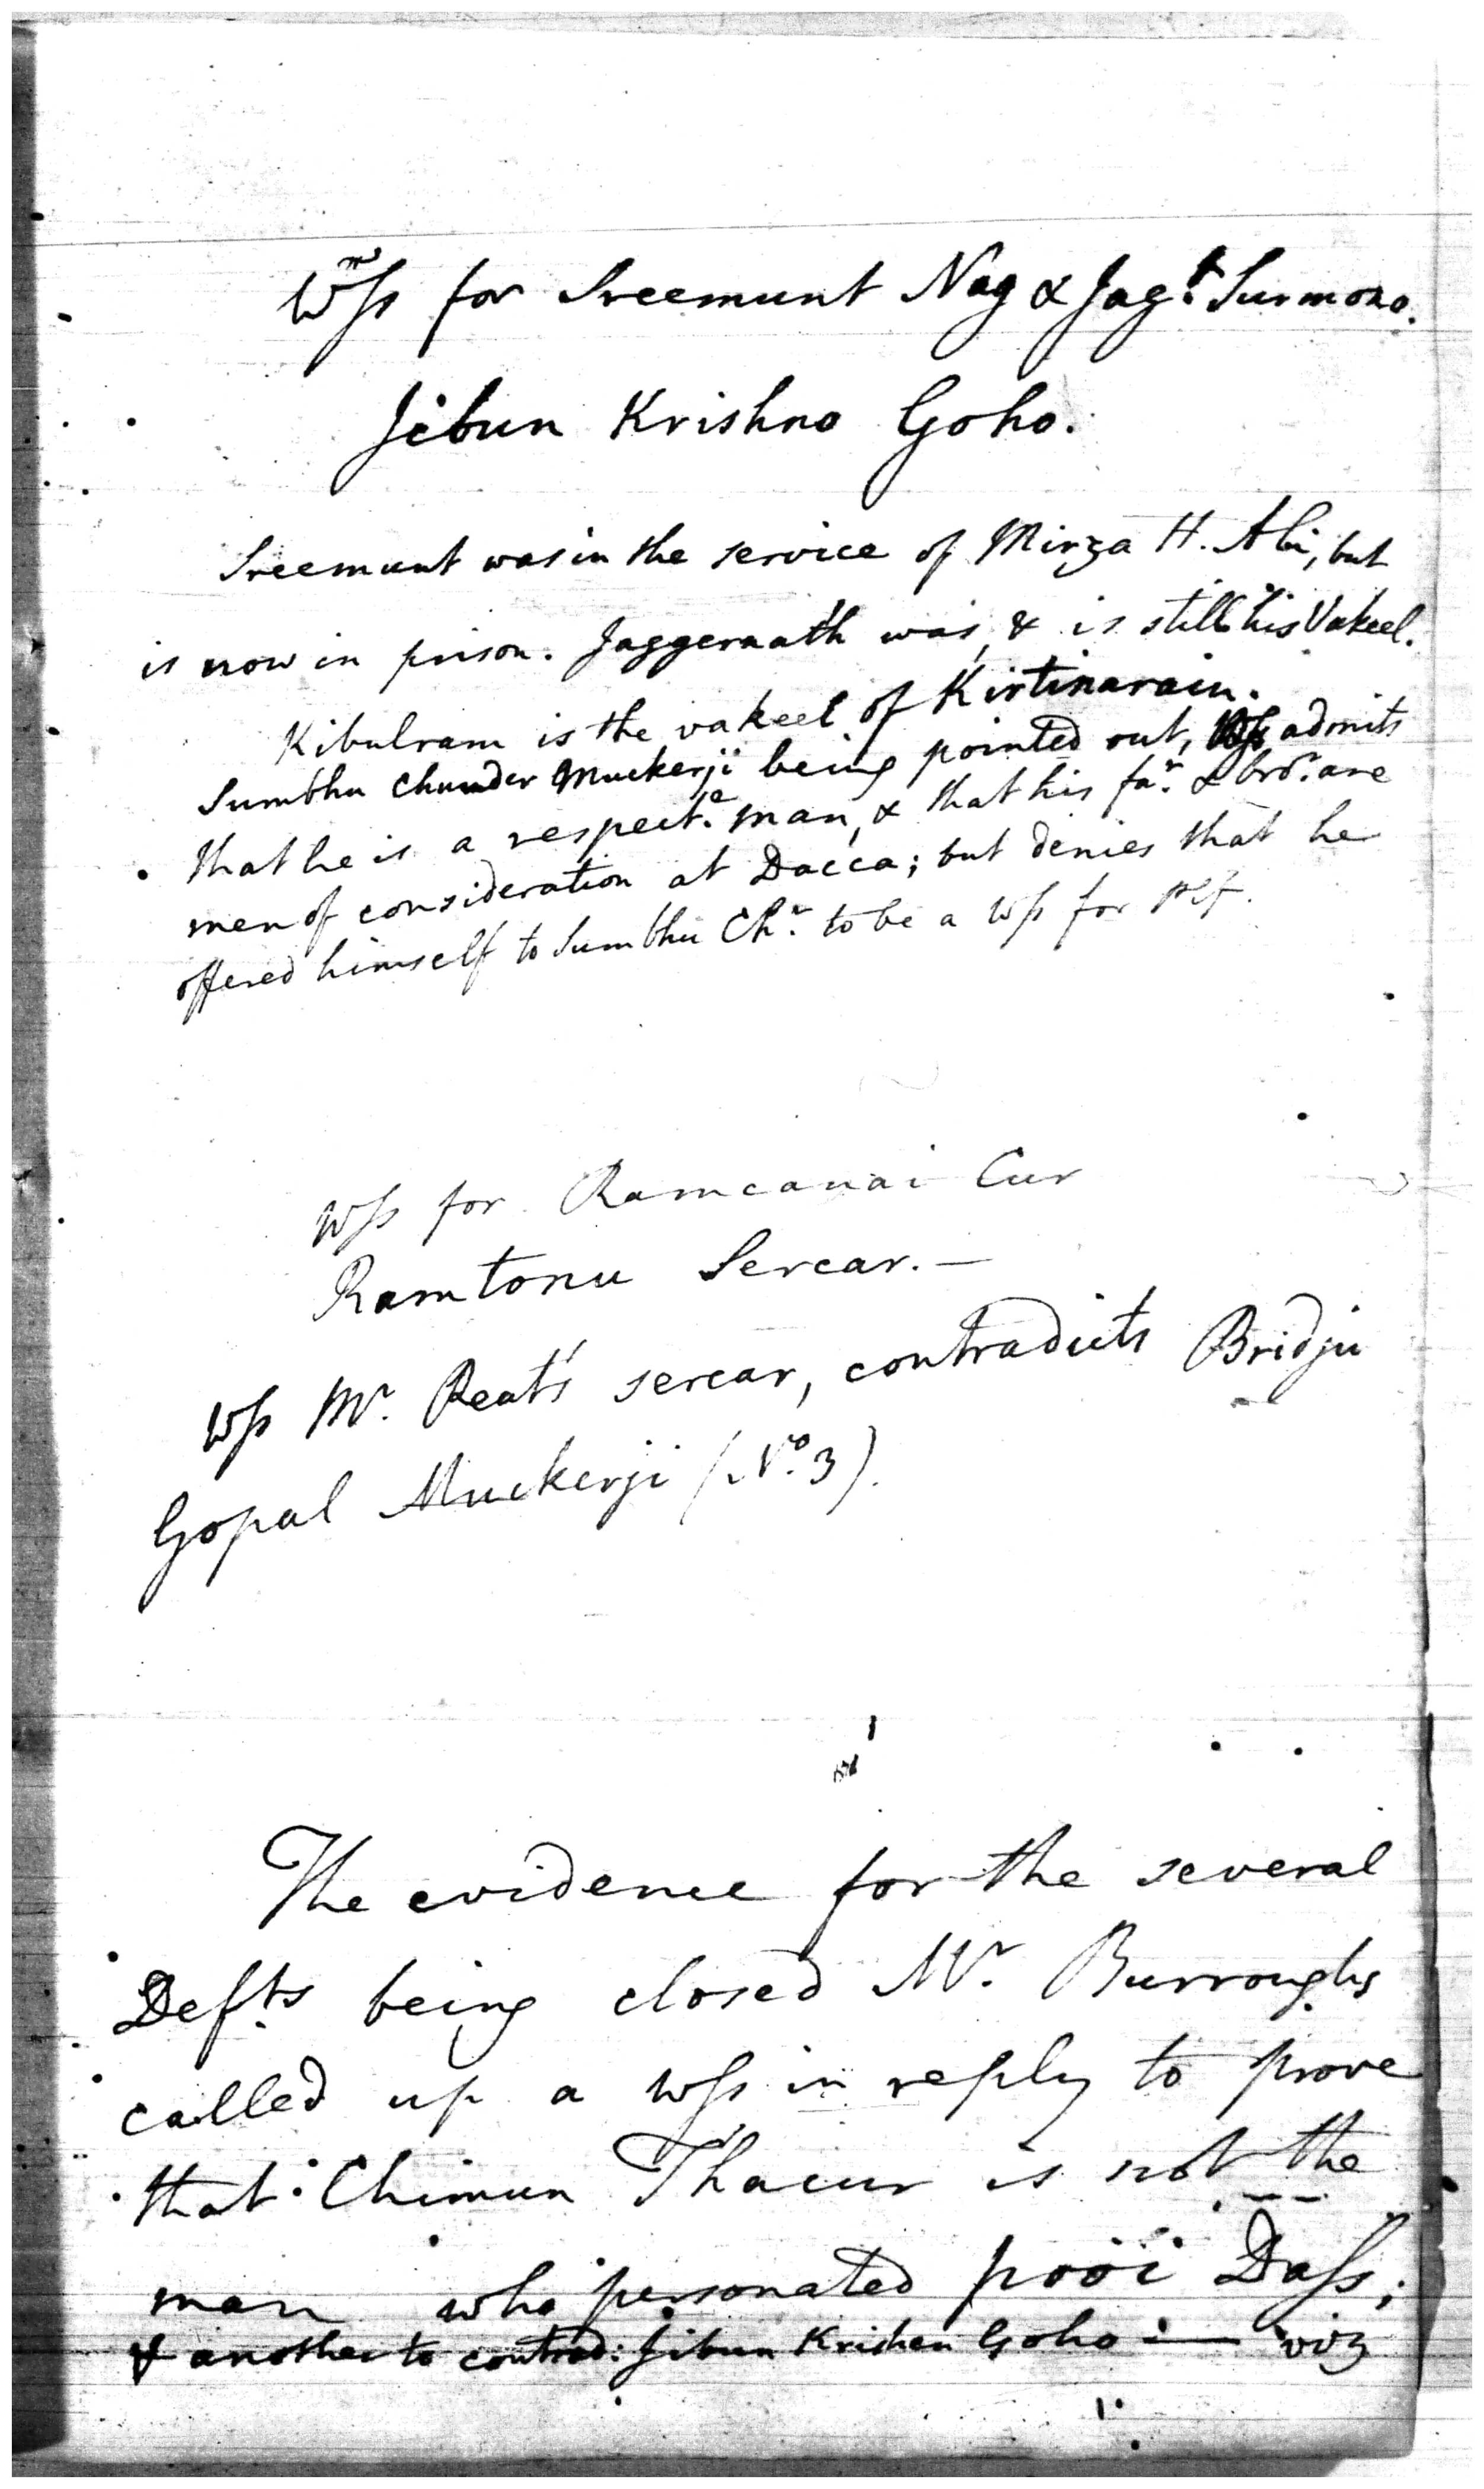 Wss for Sreemunt Nag & Jagt. Surmono.
Jibun Krishno Goho.
Sreemunt was in the service of Mirza H. Ali, but
is now in prison. Jaggernaath was, & is still his Vakeel.
Kibulram is the vakeel of Kirtinarain.
Sumbhu Chunder Muckerji being pointed out, Wss admits
that he is a respecte. man, & that his far. & bror. are
men of consideration at Dacca; but denies that he
offered himself to Sumbhu Chr. to be a Wss for Plf.
Wss for Ramcanai Cur
Ramtonu Sercar. —
Wss Mr. Reat's sercar, contradicts Bridju
Gopal Muckerji (No. 3).
The evidence for the several
Defts being closed Mr. Burroughs
called up a Wss in reply to prove
that Chimun Thacur is not the
man who personated pooi Dass;
& another to contrad: Jibun Krishen Goho :— viz